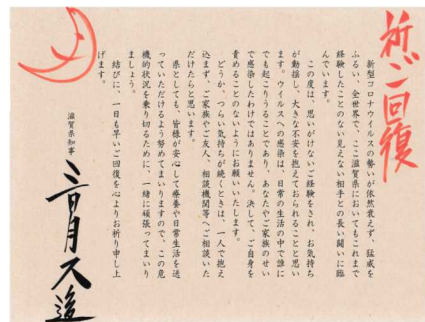 祈ご回復
新型コロナウイルスの勢いが依然衰えず、猛威を
ふるい、全世界で、ここ滋賀県においてもこれまで
経験したことのない見えない相手との長い闘いに臨
んでいます。
この度は、思いがけないご経験をされ、お気持ち
が動揺し、大きな不安を抱えておられることと思い
ます。ウイルスへの感染は、日常の生活の中で誰に
でも起こりうることであり、あなたやご家族のせい
で感染したわけではありません。決して、ご自身を
責めることのないようにお願いいたします。
どうか、つらい気持ちが続くときは、一人で抱え
込まず、ご家族やご友人、相談機関等へご相談いた
だけたらと思います。
県としても、皆様が安心して療養や日常生活を送
っていただけるよう努めてまいりますので、この危
機的状況を乗り切るために、一緒に頑張ってまいり
ましょう。
結びに、一日も早いご回復を心よりお祈り申し上
げます。
滋賀県知事
三日月大造